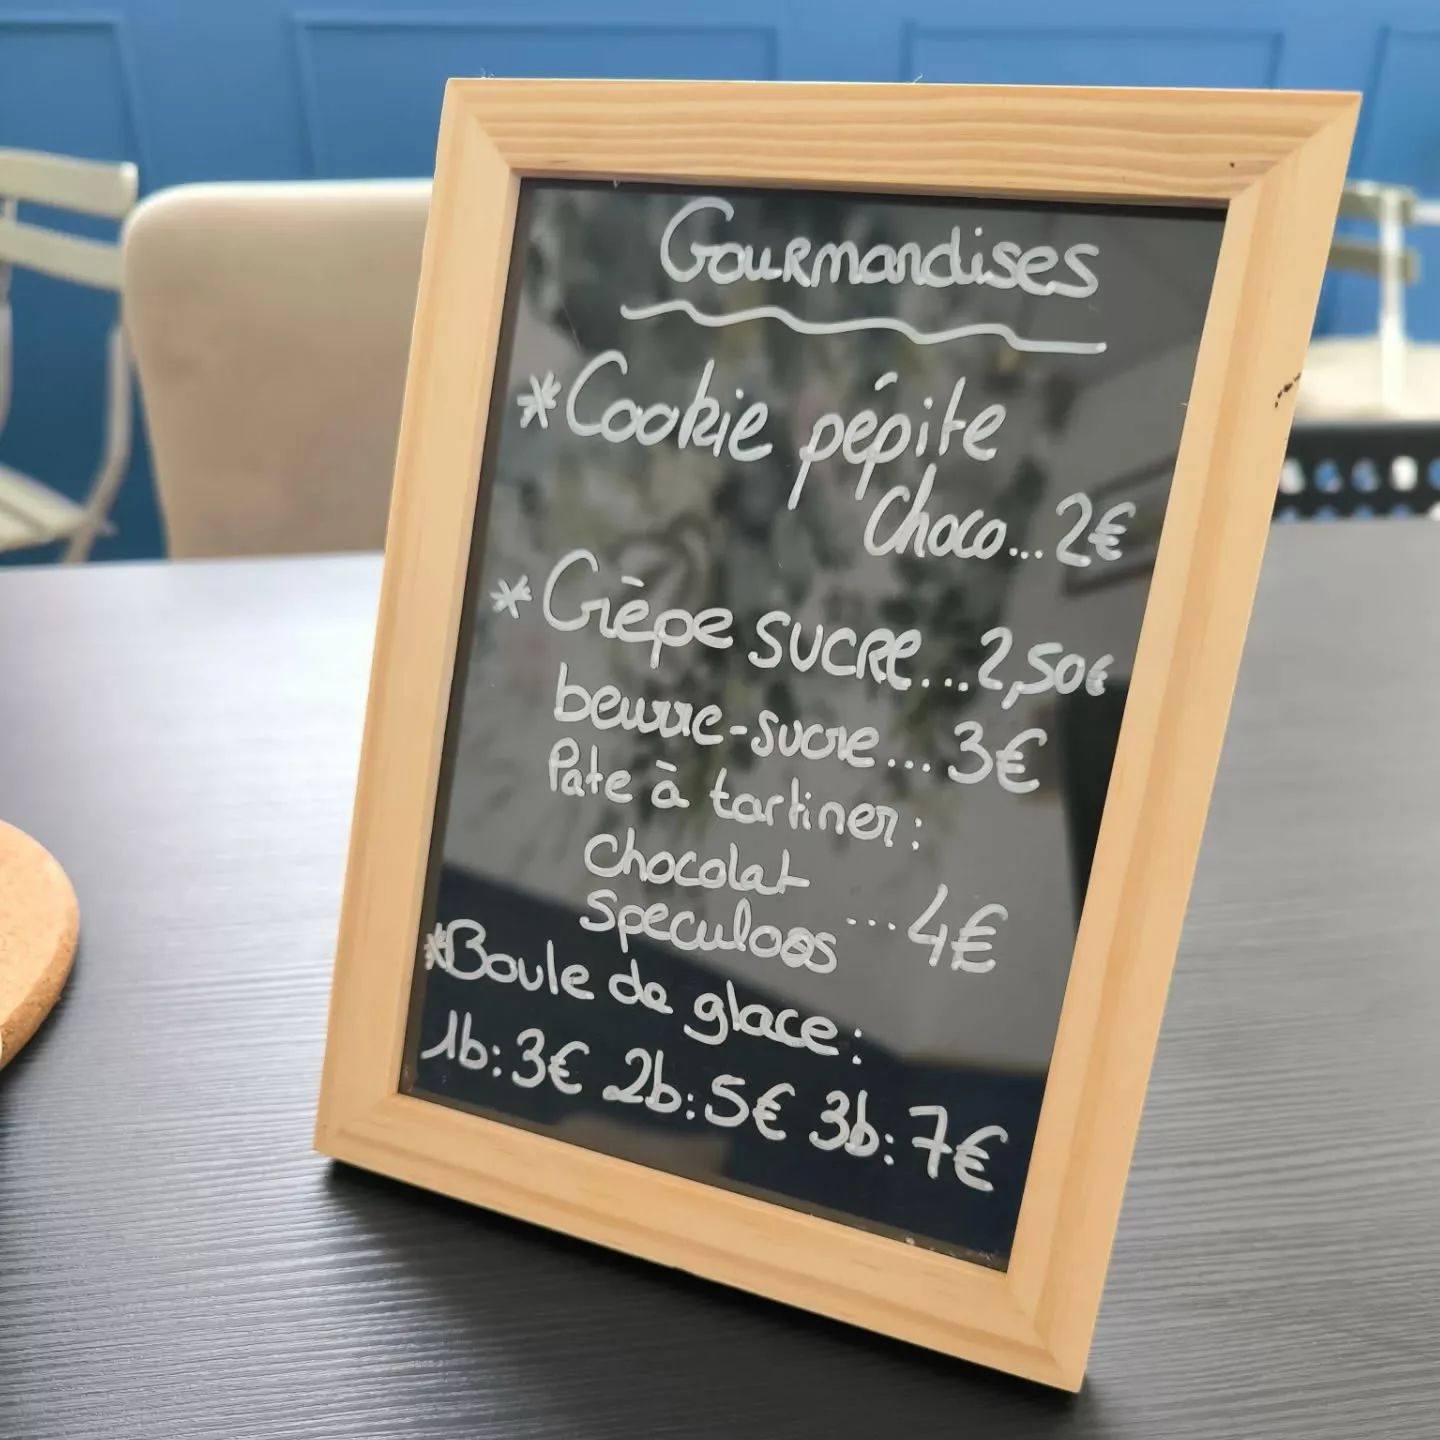 Gourmandises
*Cookie pépite
choco...2€
*Crèpe SUCRE...2,50€
beurre-sucre...3€
Pate à tartiner:
chocolat
speculoos ...4€
*Boule de glace:
1b:3€ 2b:5€ 3b:7€